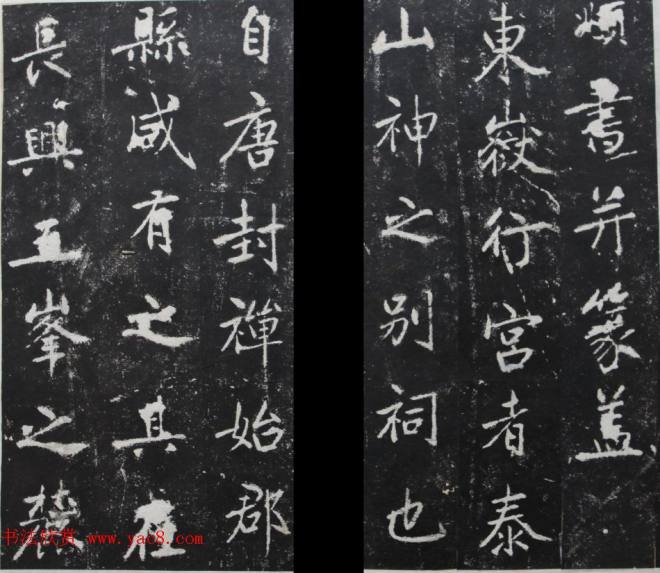 頫書并篆蓋
東嶽行宮者泰
山神之别祠也
自唐封禪始郡
縣咸有之其在
長興五峯之麓
书法欣赏 www.yac8.com